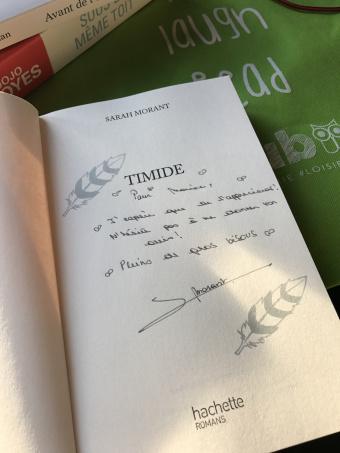 Avant de
SOUS
MÊME TOIT
JOJO
laugh
read
#LOISI
SARAH MORANT
TIMIDE
Pour
J'espère que ça t'apprécieras!
N'hésite pas à me donner ton
avis!
Pleins de gros bisous
S. Morant
hachette
ROMANS